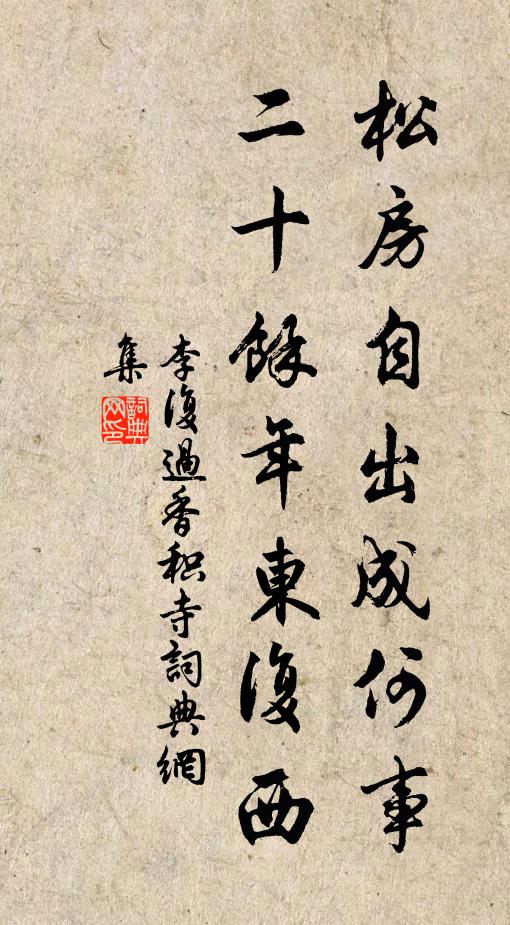 松房自出成何事
二十餘年東復西
李復過香积寺詞典網
集
詞典
网印